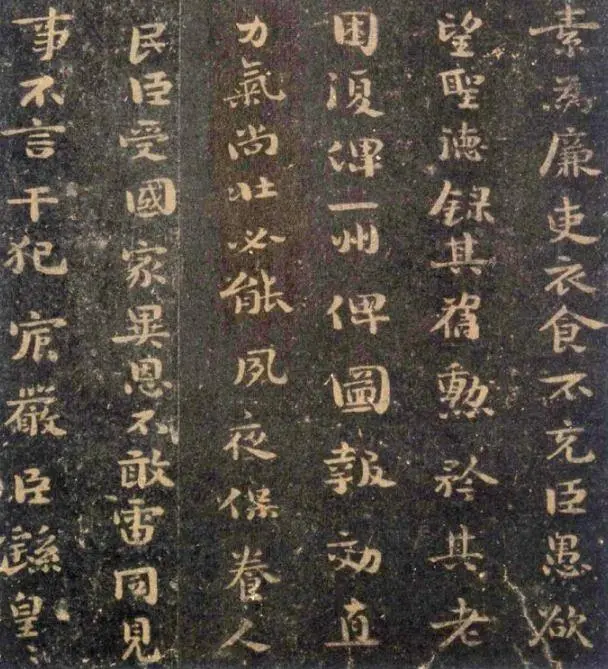 素為廉吏衣食不充臣愚欲
望聖德錄其舊勲矜其老
困復俾一州俾圖報効直
力氣尚壯必能夙夜保養人
民臣受國家異恩不敢雷同見
事不言干犯宸嚴臣繇皇〻